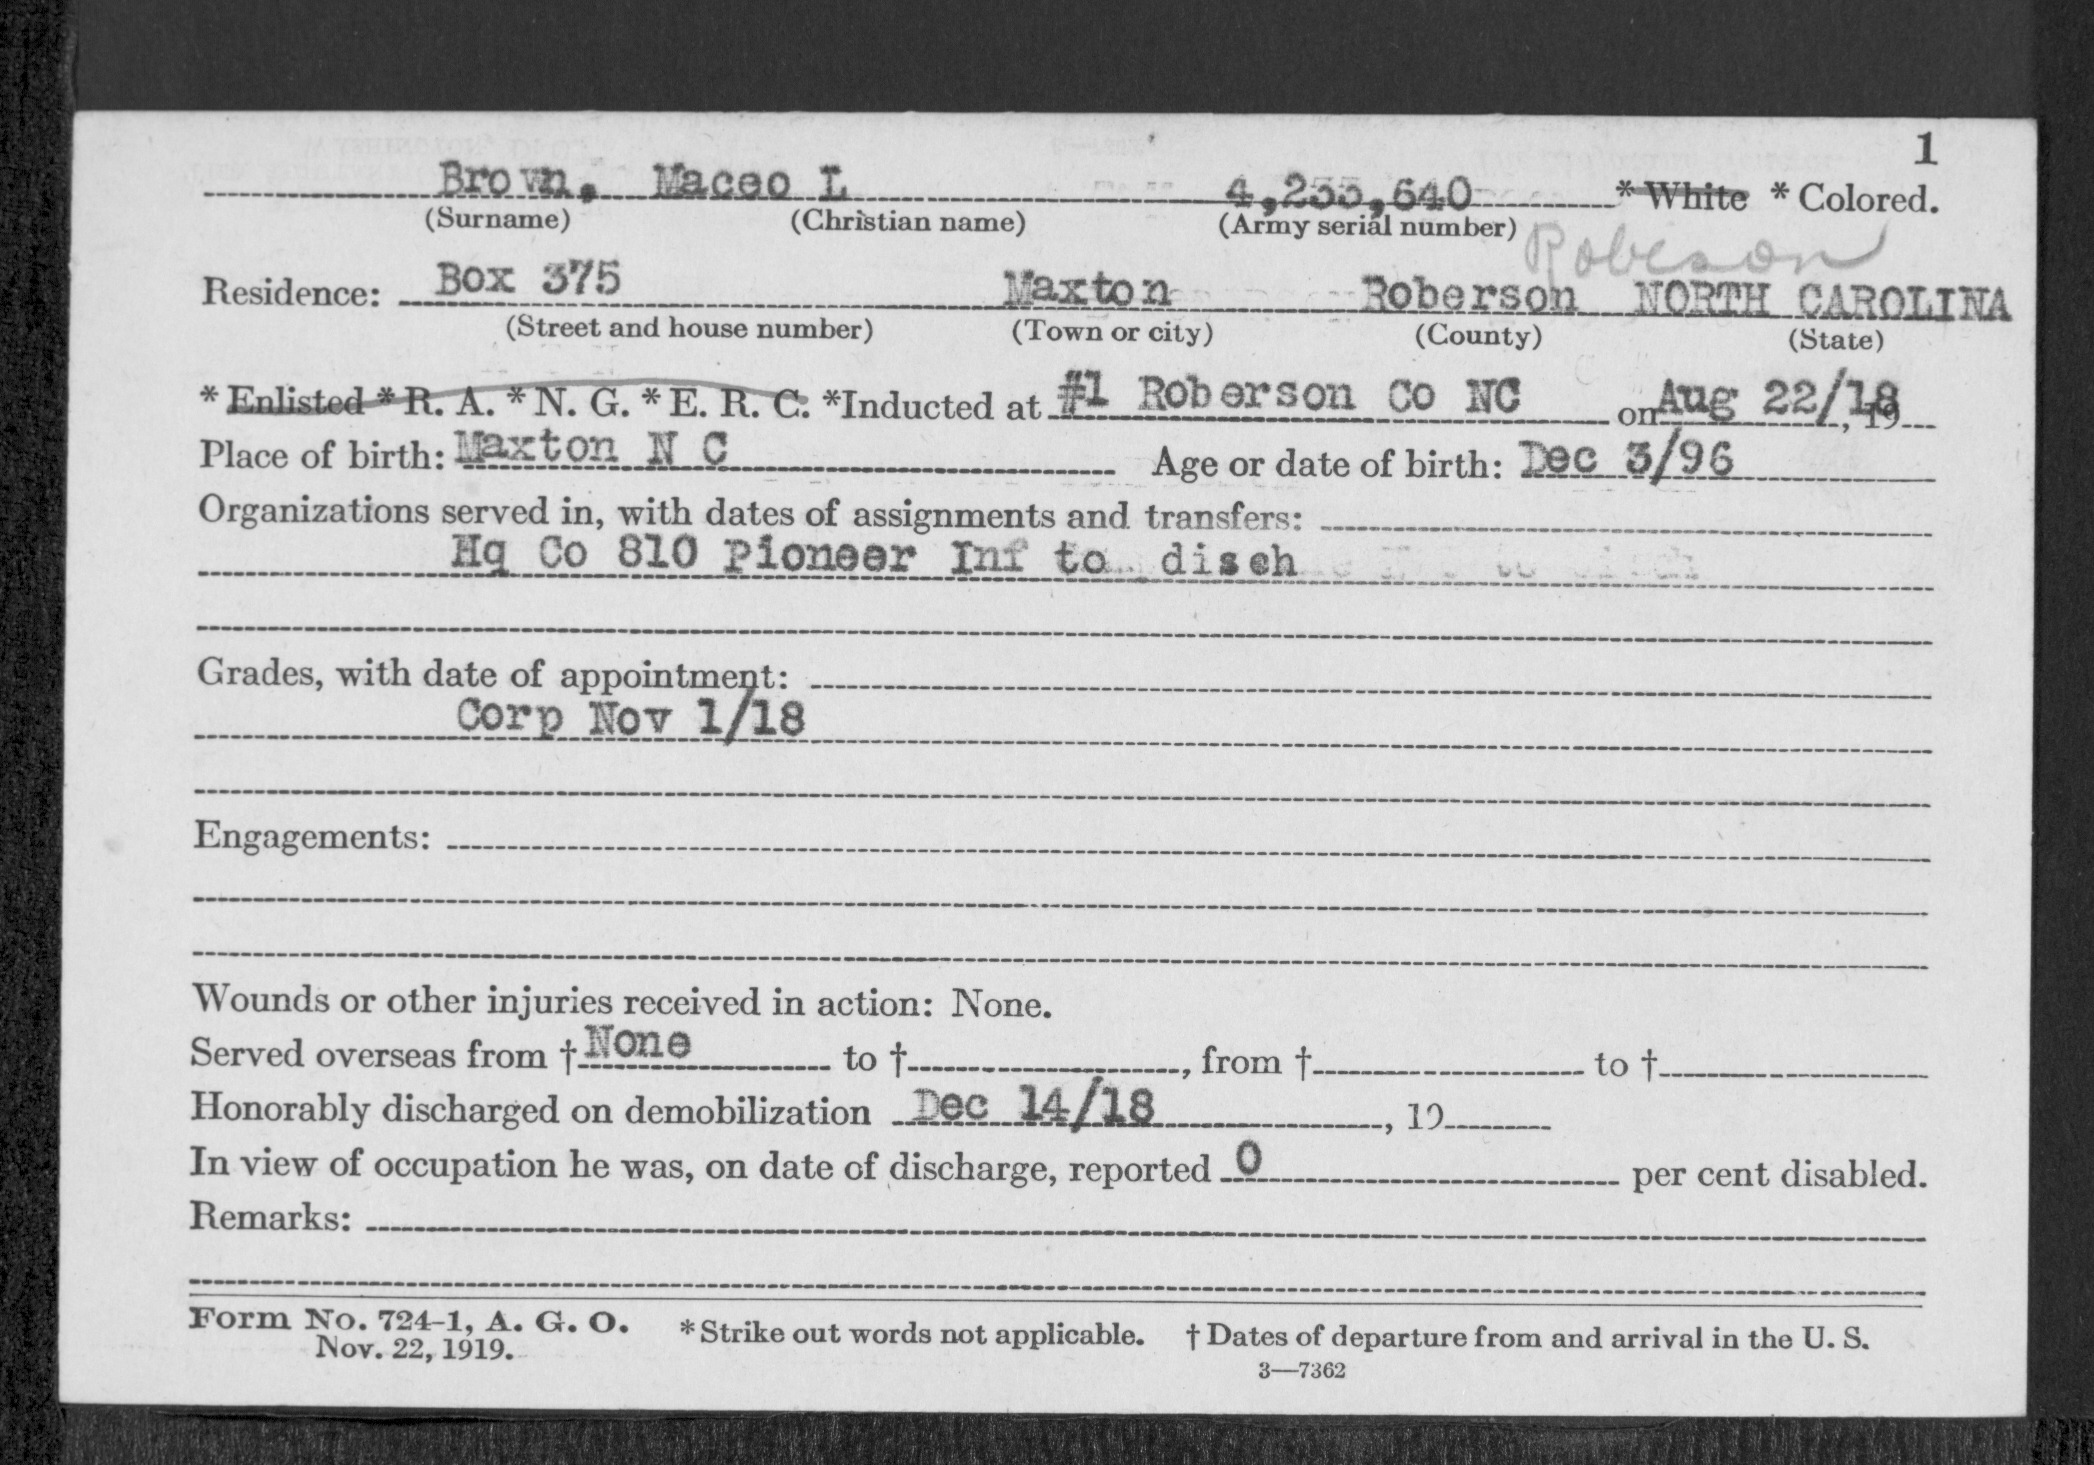 1
Brown, Maceo L 4,255,640 * White * Colored.
(Surname) (Christian name) (Army serial number)
Robeson
Residence: Box 375 Maxton Roberson NORTH CAROLINA
(Street and house number) (Town or city) (County) (State)
* Enlisted * R. A. * N. G. * E. R. C. *Inducted at #1 Roberson Co NC on Aug 22/18, 19
Place of birth: Maxton N C Age or date of birth: Dec 3/96
Organizations served in, with dates of assignments and transfers:
Hq Co 810 Pioneer Inf to disch
Grades, with date of appointment:
Corp Nov 1/18
Engagements:
Wounds or other injuries received in action: None.
Served overseas from † None to †, from † to †
Honorably discharged on demobilization Dec 14/18, 19
In view of occupation he was, on date of discharge, reported 0 per cent disabled.
Remarks:
Form No. 724-1, A. G. O. * Strike out words not applicable. † Dates of departure from and arrival in the U. S.
Nov. 22, 1919.
3—7362